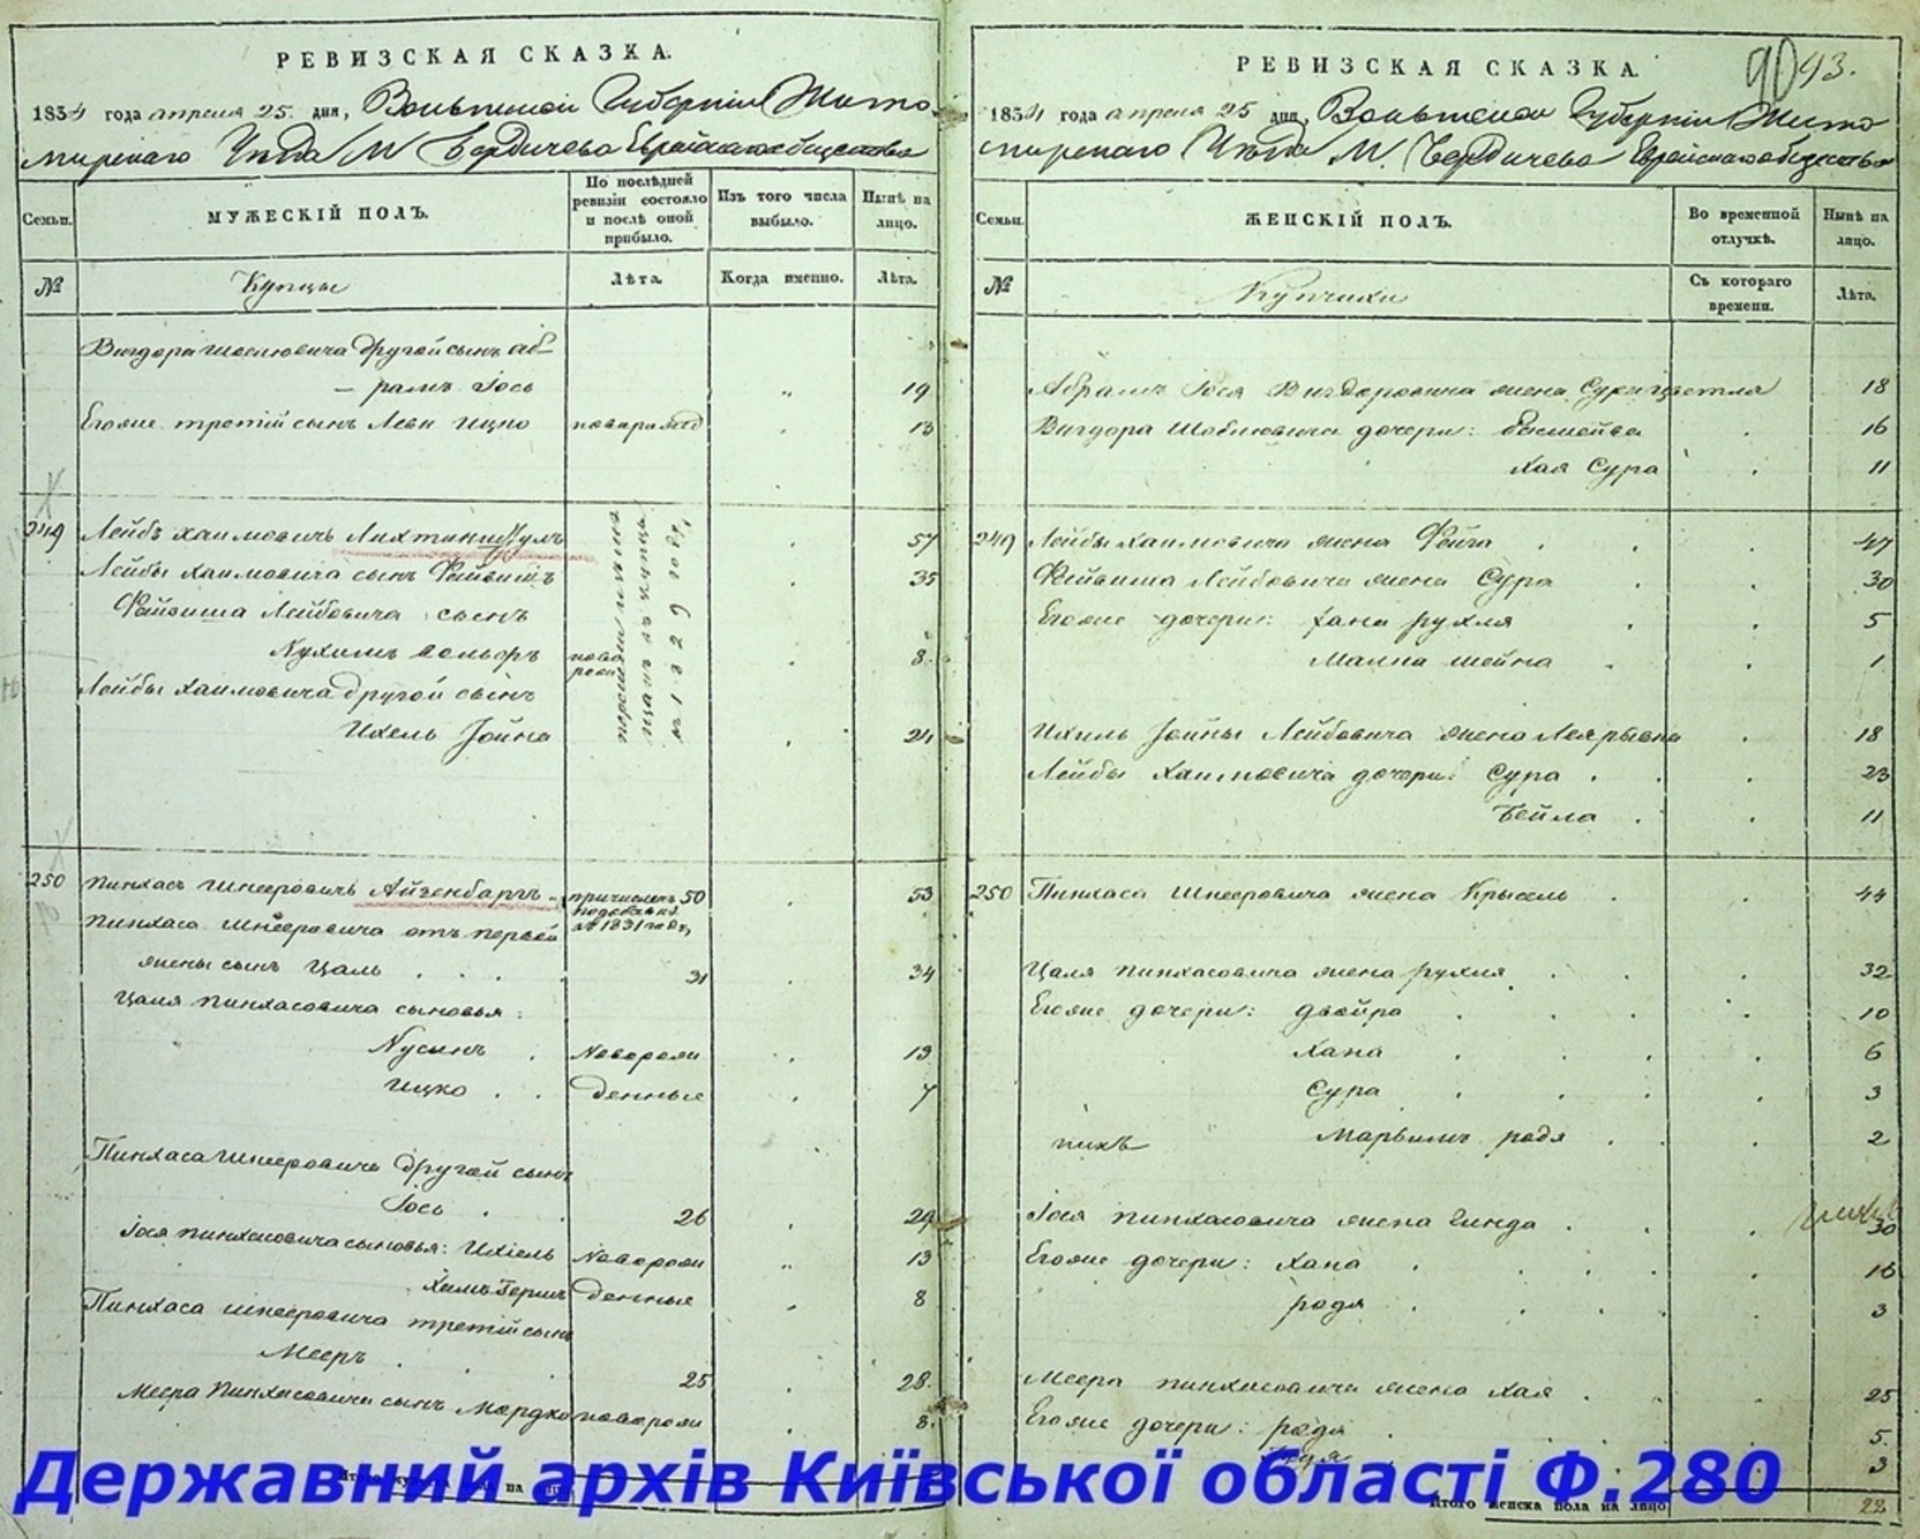 РЕВИЗСКАЯ СКАЗКА.
1834 года апреля 25 дня, Волынской Губернии Жито
мирскаго Уезда М Бердичева Еврейскаго общества
Семьи.
МУЖЕСКІЙ ПОЛЪ.
По послѣдней ревизіи состояло и послѣ оной прибыло.
Изъ того числа выбыло.
Нынѣ на лицо.
№
Купцы
Лѣта.
Когда именно.
Лѣта.
Вигдора Шоелювича другой сынъ Аб-
- рамъ Іось 19
Егоже третій сынъ Леви Ицко новорожд 13
249 Лейбъ Хаимовичъ 57
Лейбы Хаимовича сынъ Файвишъ 35
Файвиша Лейбовича сынъ
Нухимъ новорож 8
Лейбы Хаимовича другой сынъ
Ихель Іойна 24
въ 1829 году
250 Пинхасъ Шнееровичъ Айзенбаргъ причисленъ 50 53
въ 1831 году
Пинхаса Шнееровича отъ первой
жены сынъ Цаль 31 34
Цаля Пинхасовича сыновья:
Нусынъ Новорож 13
Ицко денные 7
Пинхаса Шнееровича другой сынъ
Іось 26 29
Іося Пинхасовича сыновья: Ихіель Новорож 13
Хаимъ Гершъ денные 8
Пинхаса Шнееровича третій сынъ
Мееръ 25 28
Меера Пинхасовича сынъ Мордко новорож 8
РЕВИЗСКАЯ СКАЗКА.
90 93.
1834 года апреля 25 дня, Волынской Губерніи Жито
мирскаго Уѣзда М. Бердичева Еврейскаго общества
Семьи.
ЖЕНСКІЙ ПОЛЪ.
Во временной отлучкѣ.
Нынѣ на лицо.
№
Купчихи
Съ котораго времени.
Лѣта.
Абрамъ Іося Вигдоровича жена Сура Цветля 18
Вигдора Шоелювича дочери: Басшейва 16
Хая Сура 11
249 Лейбы Хаимовича жена Фейга 47
Файвиша Лейбовича жена Сура 30
Егоже дочери: Хана Рухля 5
Малка Шейна 1
Ихиль Іойны Лейбовича жена Лея Рывка 18
Лейбы Хаимовича дочери: Сура 23
Бейла 11
250 Пинхаса Шнееровича жена Крысель 44
Цаля Пинхасовича жена Рухля 32
Егоже дочери: Двойра 10
Хана 6
Сура 3
Марьямъ Родя 2
Іося Пинхасовича жена Гинда 30
Егоже дочери: Хана 16
Родя 3
Меера Пинхасовича жена Хая 25
Егоже дочери: Родя 5
3
Итого женска пола на лицо 22
Державний архів Київської області Ф.280